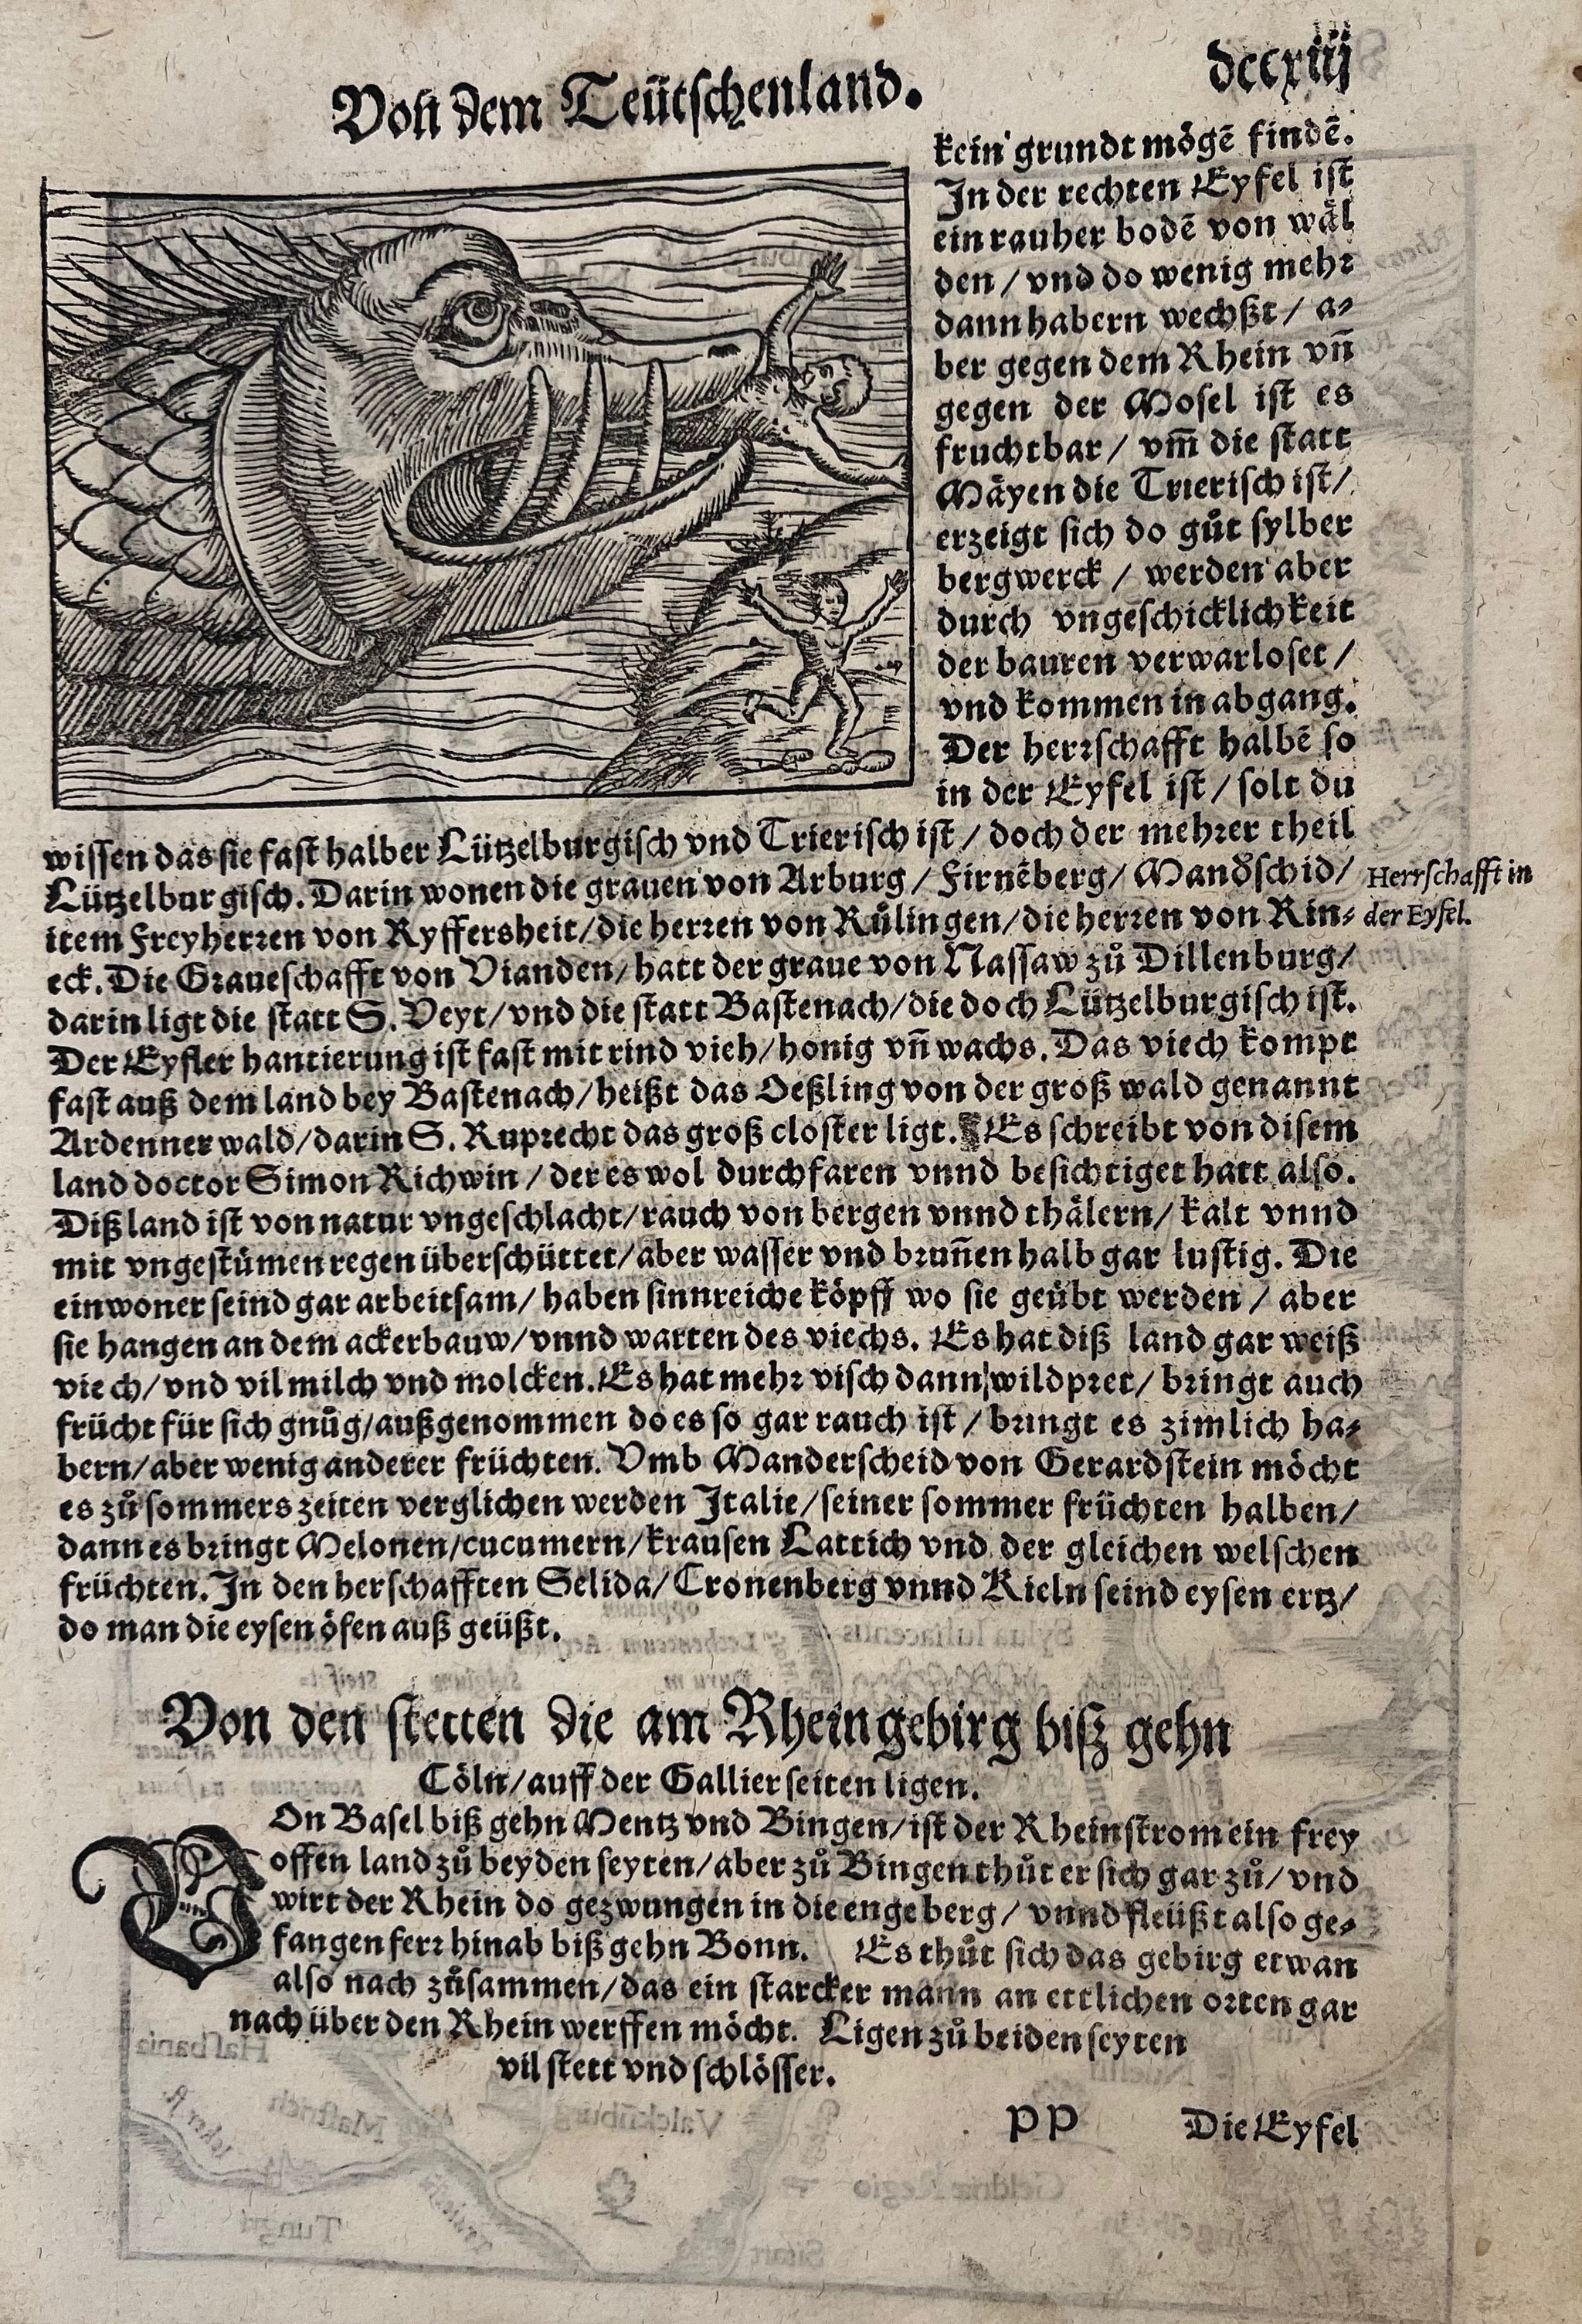 Von dem Teütschenland.
dccxiij
kein grundt mögē findē.
In der rechten Eyfel ist
ein rauher bodē von wäl
den / vnd do wenig mehr
dann habern wechßt / a⸗
ber gegen dem Rhein vñ
gegen der Mosel ist es
fruchtbar / vm̃ die statt
Mäyen die Trierisch ist /
erzeigt sich do gůt sylber
bergwerck / werden aber
durch vngeschicklichkeit
der bauren verwarloset /
vnd kommen in abgang.
Der herrschafft halbē so
in der Eyfel ist / solt du
wissen das sie fast halber Lützelburgisch vnd Trierisch ist / doch der mehrer theil
Lützelburgisch. Darin wonen die grauen von Arburg / Firnēberg / Mandschid /
Herrschafft in
der Eyfel.
item Freyherren von Ryffersheit / die herren von Růlingen / die herren von Rin⸗
eck. Die Graueschafft von Vianden / hatt der graue von Nassaw zů Dillenburg /
darin ligt die statt S. Veyt / vnd die statt Bastenach / die doch Lützelburgisch ist.
Der Eyfler hantierung ist fast mit rind vieh / honig vñ wachs. Das viech kompt
fast auß dem land bey Bastenach / heißt das Oeßling von der groß wald genannt
Ardenner wald / darin S. Ruprecht das groß closter ligt. Es schreibt von disem
land doctor Simon Richwin / der es wol durchfaren vnnd besichtiget hatt also.
Diß land ist von natur vngeschlacht / rauch von bergen vnnd thälern / kalt vnnd
mit vngestümen regen überschüttet / aber wasser vnd brunẽn halb gar lustig. Die
einwoner seind gar arbeitsam / haben sinnreiche köpff wo sie geübt werden / aber
sie hangen an dem ackerbauw / vnnd warten des viechs. Es hat diß land gar weiß
viech / vnd vil milch vnd molcken. Es hat mehr visch dann wildpret / bringt auch
frücht für sich gnůg / außgenommen do es so gar rauch ist / bringt es zimlich ha⸗
bern / aber wenig anderer früchten. Vmb Manderscheid von Gerardstein möcht
es zů sommers zeiten verglichen werden Italie / seiner sommer früchten halben /
dann es bringt Melonen / cucumern / krausen Lattich vnd der gleichen welschen
früchten. In den herschafften Selida / Cronenberg vnnd Kieln seind eysen ertz /
do man die eysen öfen auß geüßt.
Von den stetten die am Rheingebirg biß gehn
Cöln / auff der Gallier seiten ligen.
VOn Basel biß gehn Mentz vnd Bingen / ist der Rheinstrom ein frey
offen land zů beyden seyten / aber zů Bingen thůt er sich gar zů / vnd
wirt der Rhein do gezwungen in die enge berg / vnnd fleüßt also ge⸗
fangen ferr hinab biß gehn Bonn. Es thůt sich das gebirg etwan
also nach zůsammen / das ein starcker mann an ettlichen orten gar
nach über den Rhein werffen möcht. Ligen zů beiden seyten
vil stett vnd schlösser.
pp
Die Eyfel